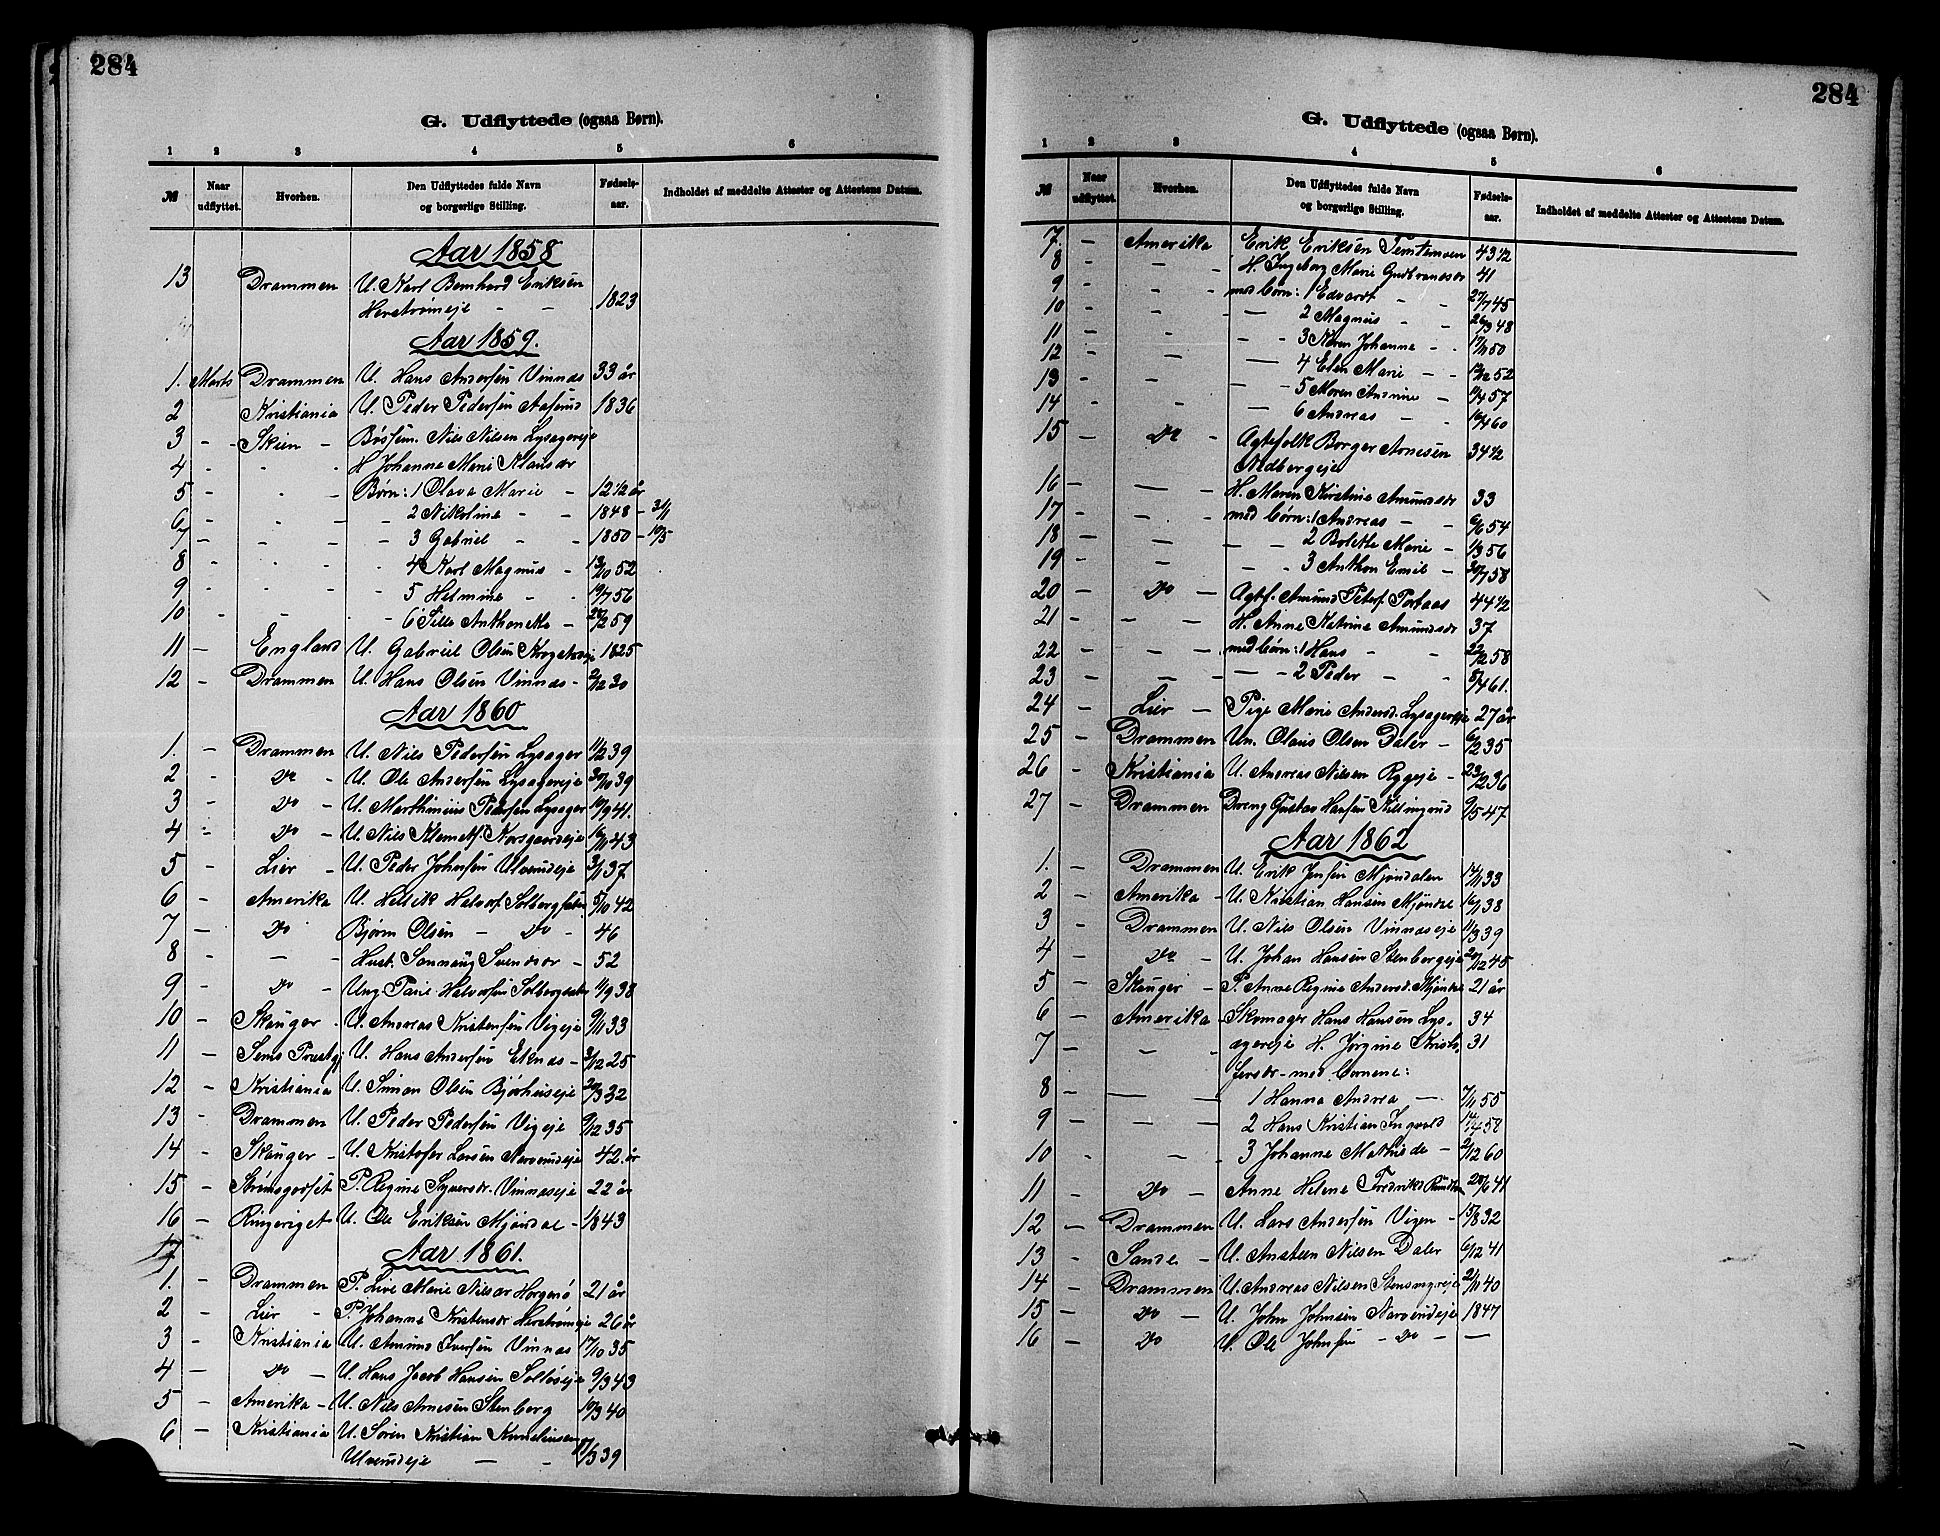 284
G. Udflyttede (ogsaa Børn).
1 2 3 4 5 6
№ Naar udflyttet. Hvorhen. Den Udflyttedes fulde Navn og borgerlige Stilling. Fødselsaar. Indholdet af meddelte Attester og Attestens Datum.
Aar 1858
13 Drammen U. Karl Bernhard Eriksen
Herstrømeje - - 1823
Aar 1859.
1. Marts Drammen U. Hans Andersen Vinnas 33 år
2 Kristiania U. Peder Pedersen Aaserud 1836
3 - - Skien - Bøssem. Nils Nilsen Lysagereje
4 - - - H. Johanne Marie Klausdr
5 - - - Børn: 1 Olava Marie - 12 1/2 år
6 - - - 2 Nikoline - - 1848 - 31/1
7 - - - 3 Gabriel - - 1850 - 10/5
8 - - - 4 Karl Magnus - 13/10 52
9 - - - 5 Helmine - - 19/7 56
10 - - - 6 Anthonette - 28/2 59
11 - England U. Gabriel Olsen 1825
12 - Drammen U. Hans Olsen Vinnas - 2/12 30
Aar 1860
1. - Drammen U. Nils Pedersen Lysager 11/2 39
2 - Do - U. Ole Andersen Lysagereje 30/10 39
3 - Do - U. Marthinius Pedersen Lysager 10/9 41.
4 - Do - U. Nils Klemets. Korsgaardeje 16/11 43
5 - Lier - U. Peder Johnsen Ulverudeje 3/1 37
6 - Amerika U. Hellik Halvors. 5/10 42
7 - Do Bjørn Olsen - Do - 46
8 - - Hust. Sonnaug Svendsdr - 52
9 - Do - Ung. Halvorsen 11/9 38
10 - Skauger - U. Andreas Kristensen Vigeje 9/11 33
11 - Sems Prestgj U. Hans Andersen Eknas - 3/12 25
12 - Kristiania U. Simon Olsen Bjørhuseje 20/3 32
13 - Drammen U. Peder Pedersen Vigeje 9/12 35
14 - Skauger - U. Kristofer Larsen Narverudeje 42. år
15 - Strømsgodset P. Regine Syversdr. Vinnaseje 22 år
16 - Ringeriget U. Ole Eriksen Mjøndal - 1843
17
Aar 1861.
1. - Drammen P. Live Marie Nilsdr Horgenø 21 år
2 - Lier - P. Johanne Kristensdr Herstrømeje 26 år
3 - Kristiania U. Amund Iversen Vinnas 17/10 35
4 - Do - U. Hans Jacob Hansen Solløseje 9/3 43
5 - Amerika - U. Nils Arnesen Stenberg 10/3 40
6 - Kristiania U. Søren Kristian Kornelinsen
Ulverudeje - - 17/3 39
284
G. Udflyttede (ogsaa Børn).
1 2 3 4 5 6
№ Naar udflyttet. Hvorhen. Den Udflyttedes fulde Navn og borgerlige Stilling. Fødselsaar. Indholdet af meddelte Attester og Attestens Datum.
7. - Amerika Erik Eriksen Temtemoen 43 1/2
8 - - - H. Ingeborg Marie Gudbrandsdr 41
9 - - - med børn: 1 Edvardt - - 27/7 45
10 - - - 2 Magnus - - 26/3 48
11 - - - 3 Karen Johanne - - 17/11 50
12 - - - 4 Elen Marie - - 12/12 52
13 - - - 5 Maren Andrine - 11/4 57
14 - - - 6 Andreas - - 16/4 60
15 - Do - Ægtefolk Borger Arnesen 34 1/2
Nedbergeje
16 - - H. Maren Kristine Amundsdr 33
17 - - - med børn: 1 Andreas - - 6/6 54
18 - - - 2 Bolette Marie - 1/3 56
19 - - - 3 Anthon Emil - 30/7 58
20 - Do - Ægtf. Amund Peters. 44 1/2
21 - - - H. Anne Katrine Amundsdr 37
22 - - med børn: 1 Hans - - 22/12 58
23 - - - 2 Peder - - 5/4 61.
24 - Lier - Pige Marie Andersd. Lysagereje 27 år
25 - Drammen Un. Olaus Olsen Daler - 6/2 35
26 - Kristiania U. Andreas Nilsen Ryggeje - 23/2 36
27 - Drammen Dreng Gustav Hansen Killingrud 9/5 47
Aar 1862
1. - Drammen U. Erik Jensen Mjøndalen 14/11 33
2 - Amerika - U. Kristian Hansen Mjøndal 16/1 38
3 - Drammen U. Nils Olsen Vinnaseje 11/3 39
4 - Do - U. Johan Hansen Stenbergeje 20/12 45
5 - Skauger - P. Anne Regine Andersd. Mjøndal 21 år
6 - Amerika - Skomager Hans Hansen Lys- 34
7 - - - agereje H. Jørgine Kristo- 31
fersdr - med børnene:
8 - - - 1 Hanna Andrea - 7/11 55
9 - - - 2 Hans Kristian Ingvald 17/4 58
10 - - 3 Johanne Mathilde - 2/12 60
11 - Do - Anne Helene Fredriksd. 20/6 41
12 - Drammen U. Lars Andersen Vigen - 15/8 32
13 - Sande - U. Ansteen Nilsen Daler 6/12 41
14 - Drammen U. Andreas Nilsen 21/11 40
15 - Do - U. John Johnsen Narverudeje 1847
16 - Do U. Ole Johnsen - Do - -